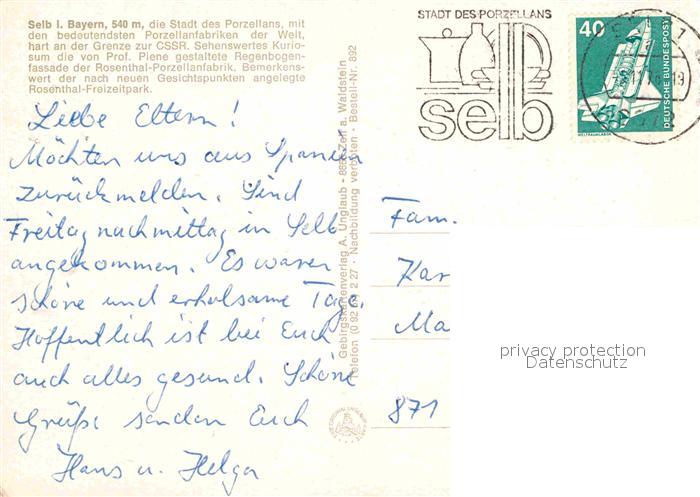 Selb i. Bayern, 540 m, die Stadt des Porzellans, mit
den bedeutendsten Porzellanfabriken der Welt,
hart an der Grenze zur CSSR. Sehenswertes Kurio-
sum die von Prof. Piene gestaltete Regenbogen-
fassade der Rosenthal-Porzellanfabrik. Bemerkens-
wert der nach neuen Gesichtspunkten angelegte
Rosenthal-Freizeitpark.
Liebe Eltern!
Möchten uns aus Spanien
zurückmelden. Sind
Freitag nachmittag in Selb
angekommen. Es waren
schöne und erholsame Tage.
Hoffentlich ist bei Euch
auch alles gesund. Schöne
Grüße senden Euch
Hans u. Helga
Gebirgskartenverlag A. Unglaub - Zell a. Waldstein
Telefon (0 92 2 27 · Nachbildung verboten · Bestell-Nr. 892
STADT DES PORZELLANS
selb
40
DEUTSCHE BUNDESPOST
WELTRAUMLABOR
Fam.
Kar
Ma
871
privacy protection
Datenschutz